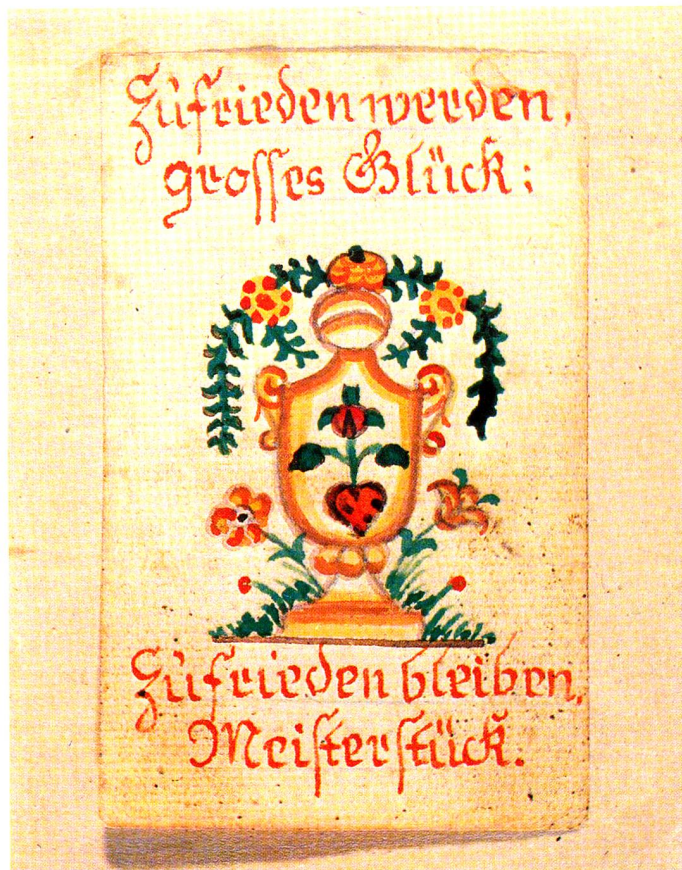 Zufrieden werden,
grosses Glück:
Zufrieden bleiben,
Meisterstück.